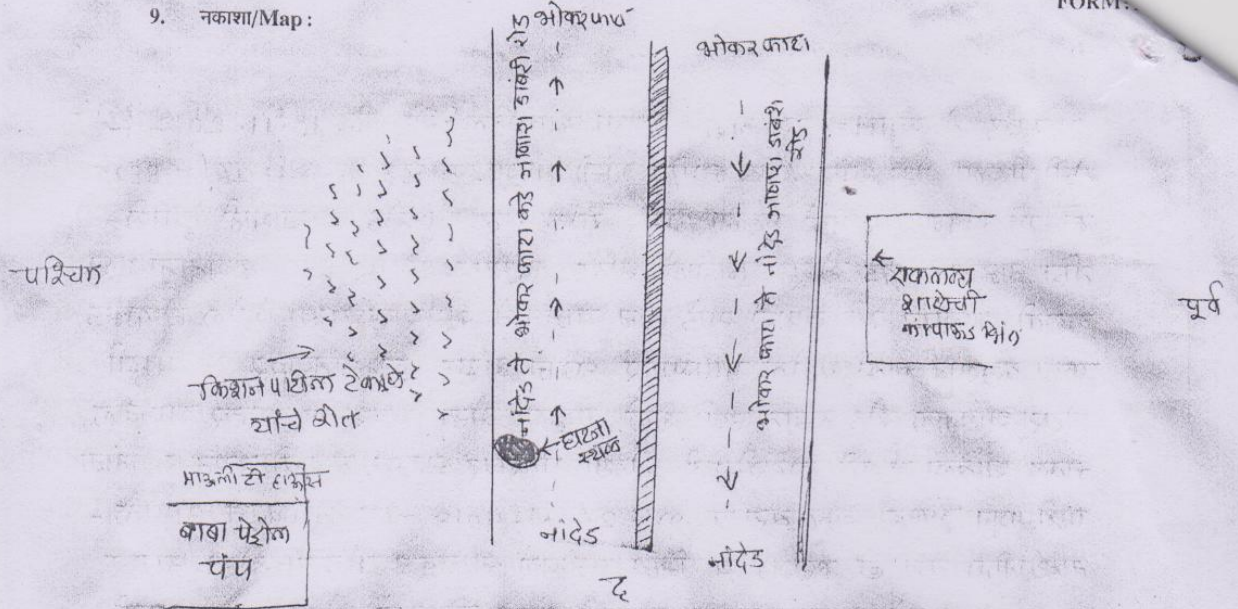 9. नकाशा/Map :
FORM:
भोकरफाटा
भोकर फाटा
नांदेड ते भोकर फाटा कडे जाणारा डांबरी रोड
भोकर फाटा ते नांदेड जाणारा डांबरी
रोड
पश्चिम
पूर्व
शाळेची
कंपाऊंड भिंत
किशन पाटील टेकाळे
यांचे शेत
घटना
स्थळ
माऊली टी हाऊस
बाबा पेट्रोल
पंप
नांदेड
नांदेड
द